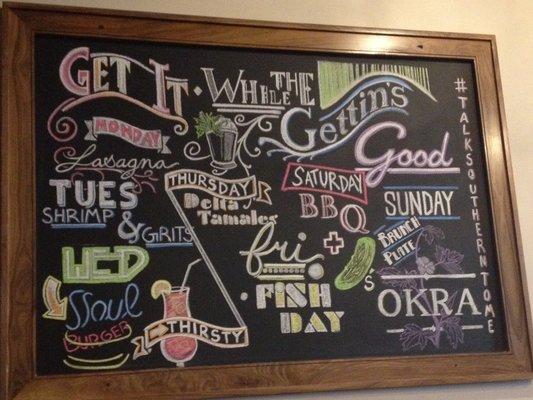 GET IT WHILE THE
Gettin's
Good
MONDAY
Lasagna
TUES
SHRIMP
& GRITS
WED
Soul
BURGER
THURSDAY
Delta
Tamales
THIRSTY
fri
FISH
DAY
SATURDAY
BBQ
+
's
SUNDAY
BRUNCH
PLATE
OKRA
#TALKSOUTHERNTOME